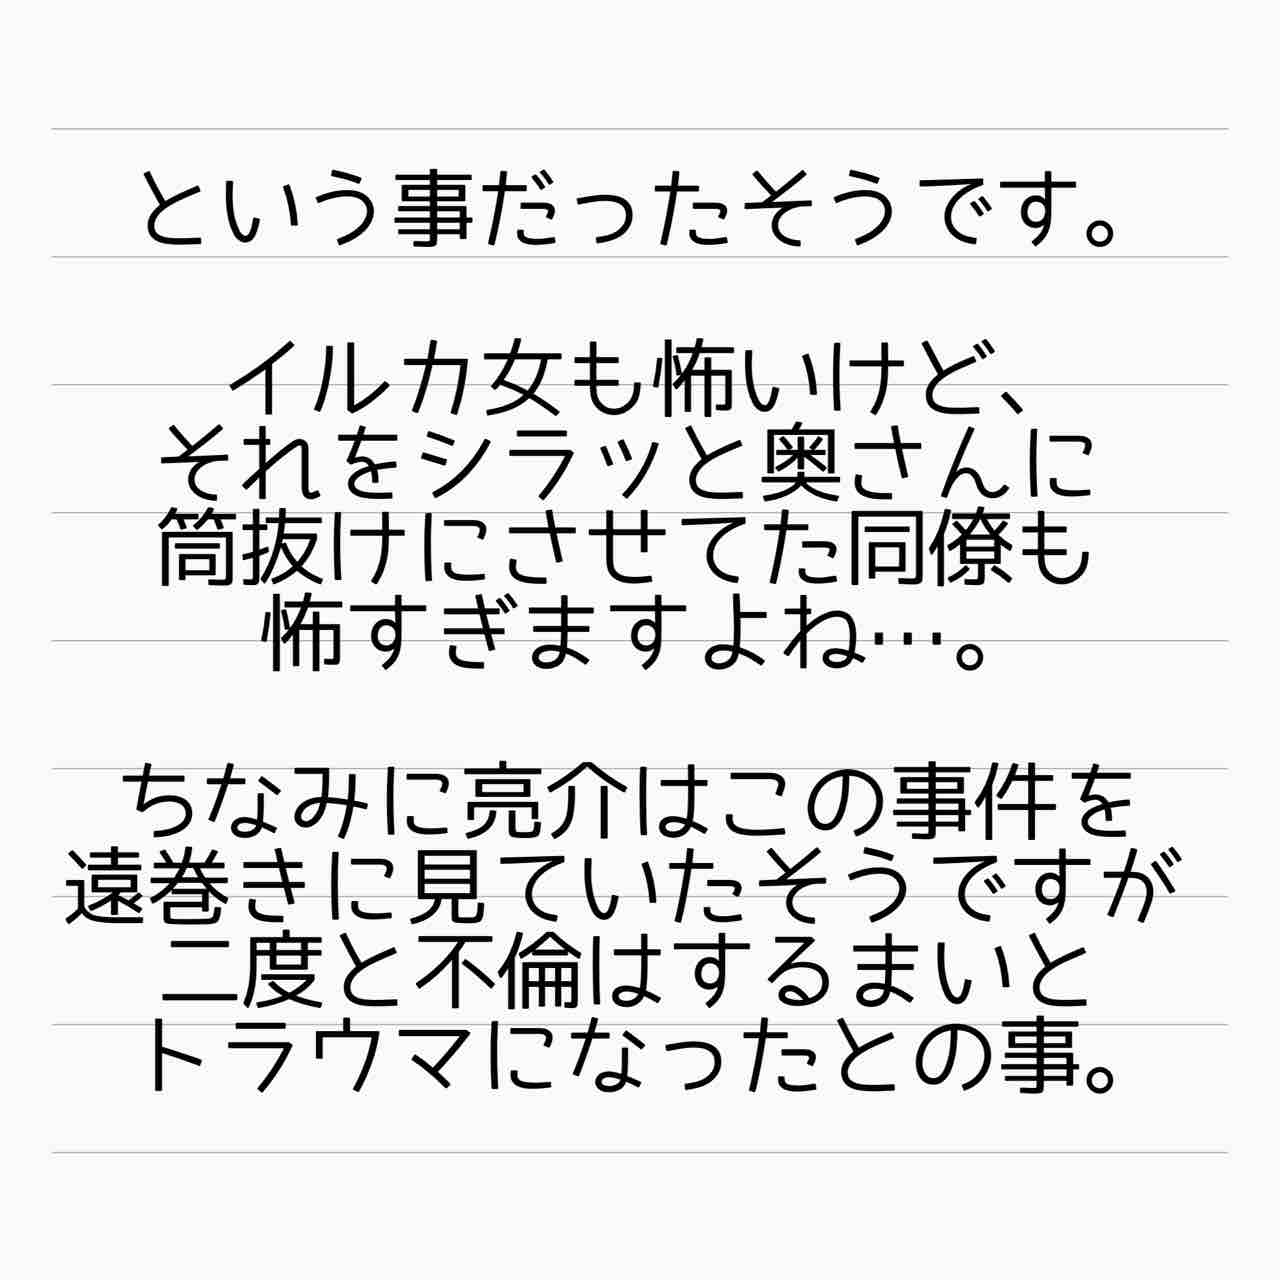 という事だったそうです。
イルカ女も怖いけど、
それをシラッと奥さんに
筒抜けにさせてた同僚も
怖すぎますよね…。
ちなみに亮介はこの事件を
遠巻きに見ていたそうですが
二度と不倫はするまいと
トラウマになったとの事。